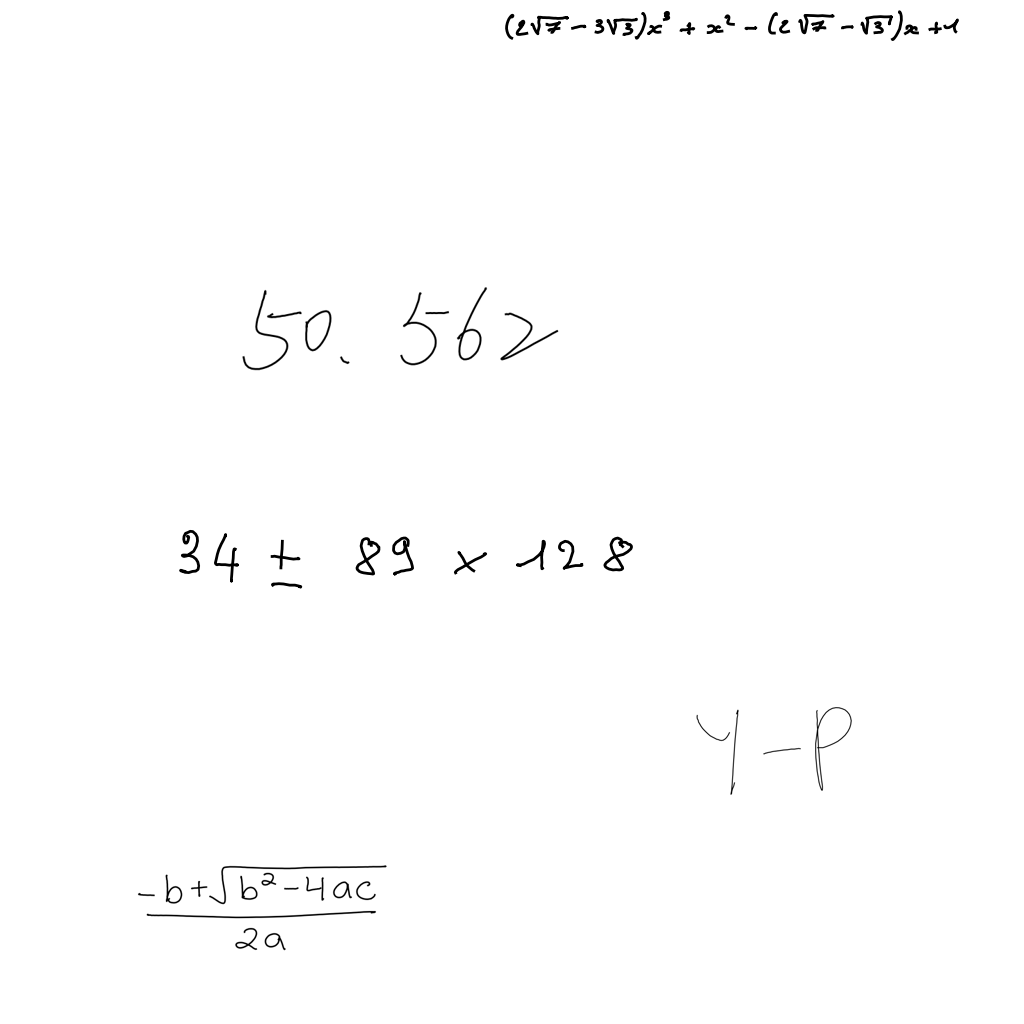 (2√7 − 3√3)x³ + x² − (2√7 − √3)x + 1
50.562
34 ± 89 × 128
y − p
(-b + √(b² − 4ac)) / (2a)